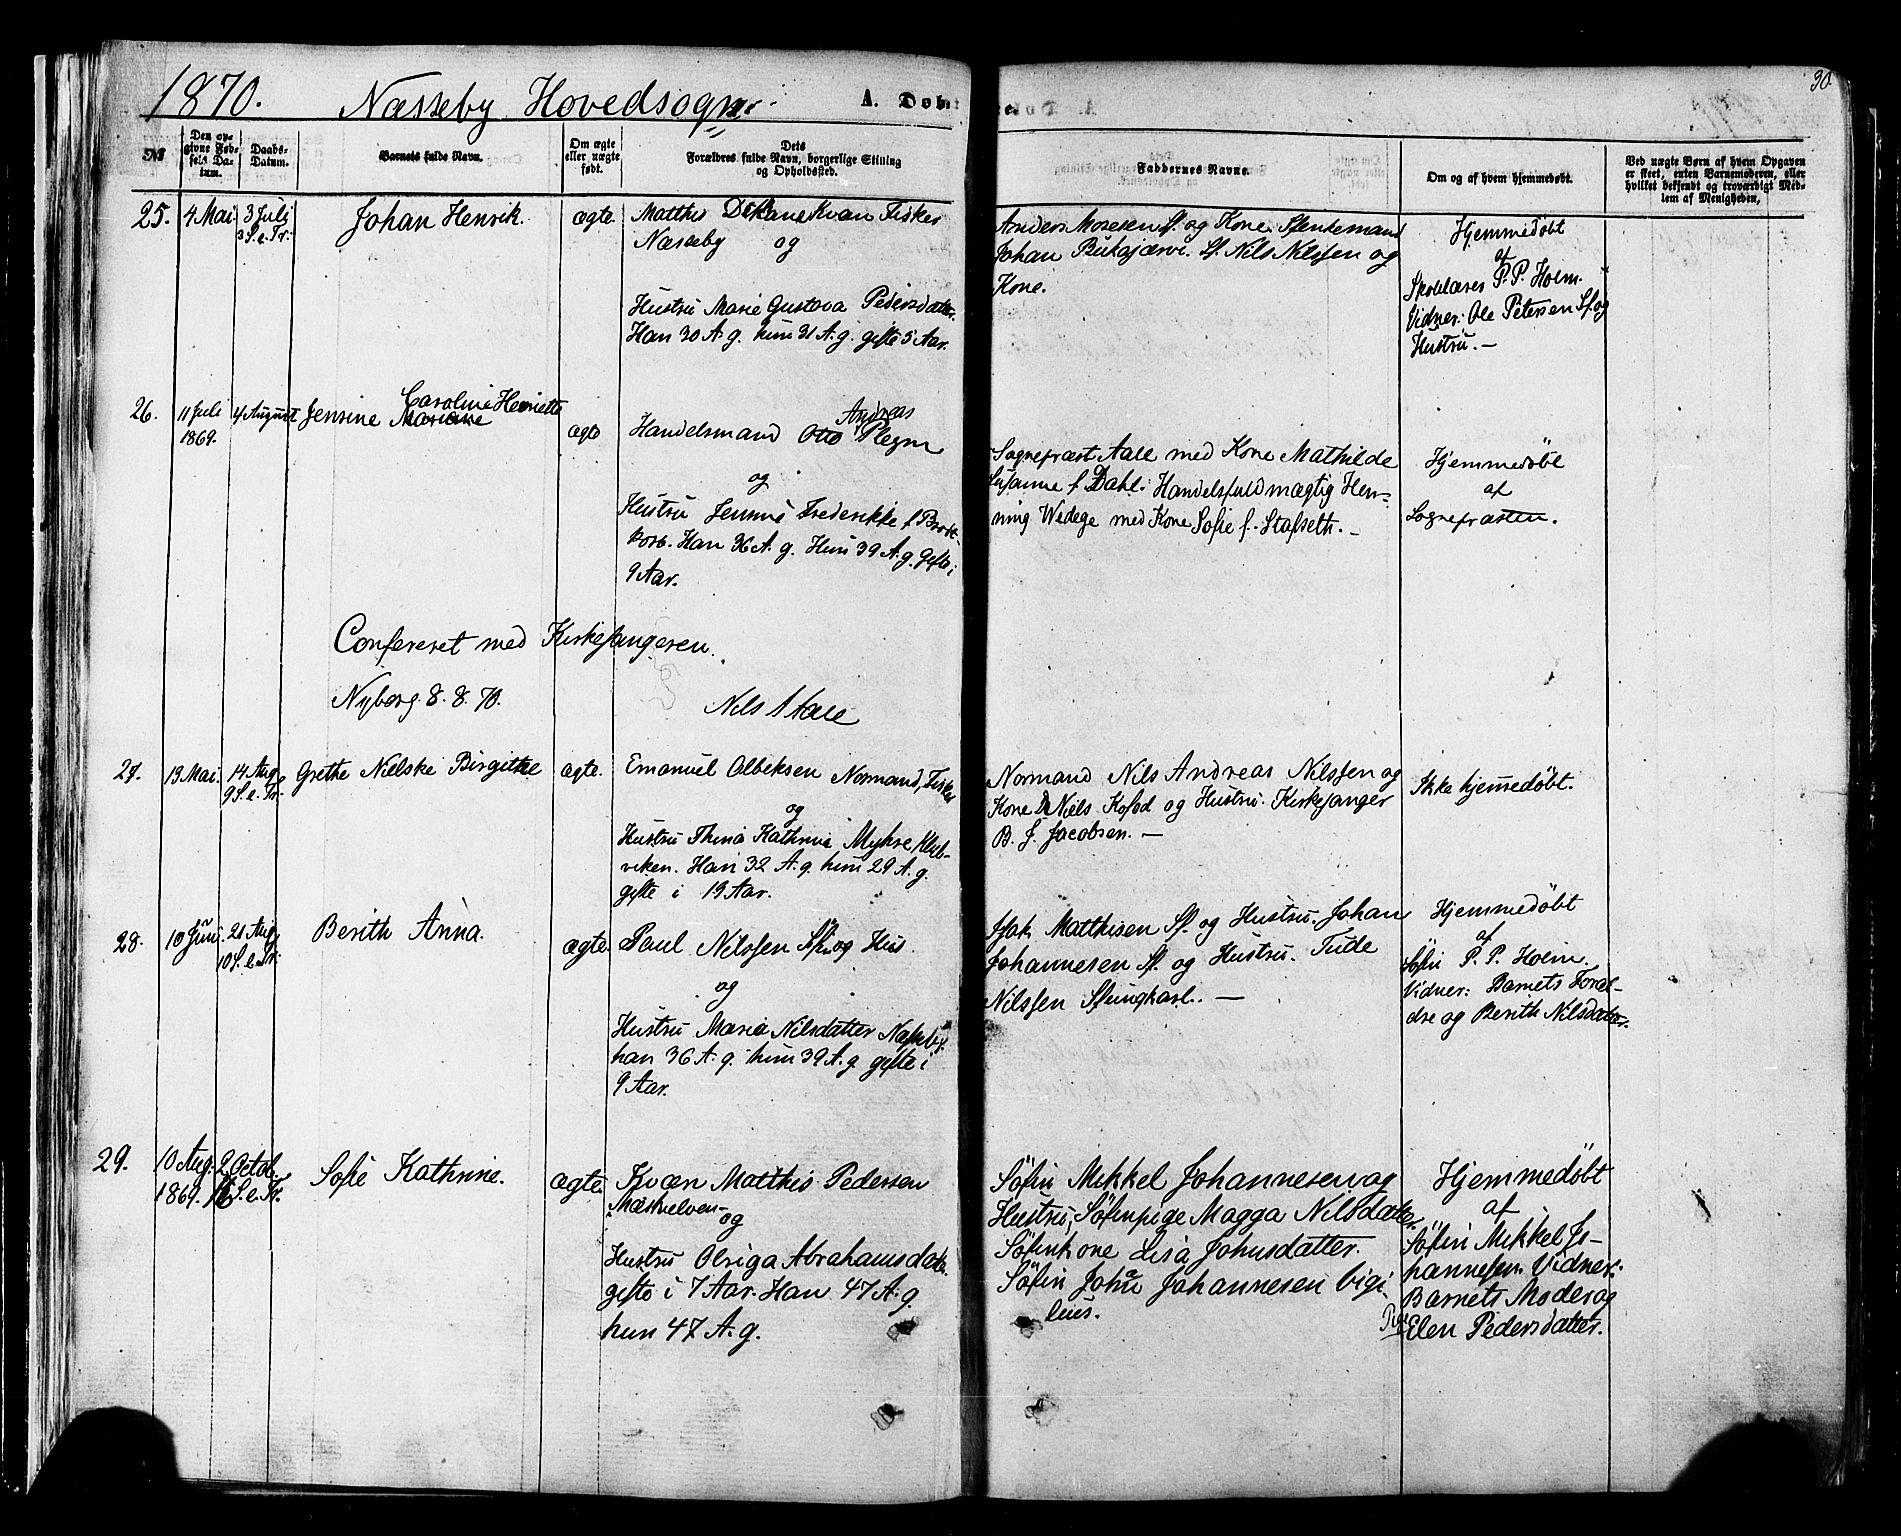 1870. Næsseby Hovedsogn.
A. Døbte.
30.
№
Den opgivne Fødsels Datum.
Daabs-Datum.
Barnets fulde Navn.
Om ægte eller uægte født.
Dets Forældres fulde Navn, borgerlige Stilling og Opholdssted.
Faddernes Navne.
Om og af hvem hjemmedøbt.
Ved uægte Børn af hvem Opgaven er skeet, enten Barnemoderen, eller hvilket bekjendt og troværdigt Medlem af Menigheden.
25. 4 Mai 3 Juli
3 S. e. Tr.
Johan Henrik.
ægte
Matthis Kvæn Fisker
Næsseby og
Hustru Marie Gustava Pedersdatter.
Han 30 A. g. hun 31 A. g. gifte 5 Aar.
Anders Mosesen Sf. og Kone. Lensmand
Johan . Sf. Nils Nilssen og
Kone.
Hjemmedøbt
af
Skolelærer P. P. Holm.
Vidner: Ole Petersen Sf. og
Hustru. —
26. 11 Juli 1869. 4 August
Caroline Henriette
Jensine Mariane
ægte
Andreas
Handelsmand Otto Plegn
og
Hustru Jensine Frederikke f. Brodt-
korb. Han 36 A. g. Hun 39 A. g. Gifte i
9 Aar.
Sognepræst Aall med Kone Mathilde
Susanne f. Dahl. Handelsfuldmægtig Hen-
ning Wedege med Kone Sofie f. Stafseth. —
Hjemmedøbt
af
Sognepræsten.
Confereret med Kirkesangeren.
Nyborg 8. 8. 70.
Nils Aall
27. 13 Mai. 14 Aug.
9 S. e. Tr.
Grethe Nielske Birgitte
ægte.
Emanuel Olbeksen Normand, Fisker
og
Hustru Thina Kathrine Myhre Klub-
viken. Han 32 A. g. hun 29 A. g.
gifte i 13 Aar.
Normand Nils Andreas Nilssen og
Kone Niels Kofod og Hustru. Kirkesanger
B. J. Jacobsen. —
Ikke hjemmedøbt.
28. 10 Juni. 21 Aug.
10 S. e. Tr.
Berith Anna.
ægte.
Paul Nilssen Sfin og Hus
og
Hustru Maria Nilsdatter Næsseby.
han 36 A. g. hun 39 A. g. gifte i
9 Aar.
Isak Matthisen Sf. og Hustru. Johan
Johannesen Sf. og Hustru. Tude
Nilssen Sf. ungkarl. —
Hjemmedøbt
af
Søfin P. P. Holm.
Vidner: Barnets Foræl-
dre og Berith Nilsdatter.
29. 10 Aug. 1869. 2 Octob.
16 S. e. Tr.
Sofie Kathrine.
ægte.
Kvæn Matthis Pedersen
Mæskelven
og
Hustru Olriga Abrahamsdatter.
gifte i 7 Aar. Han 47 A. g.
hun 47 A. g.
Søfin Mikkel Johannesen og
Hustru; Søfinpige Magga Nilsdatter.
Søfinkone Lisa Johnsdatter.
Søfin Johan Johannesen Vigi-
lius.
Hjemmedøbt
af
Søfin Mikkel Jo-
hannesen. Vidner:
Barnets Moder og
Pige Elen Pedersdatter.